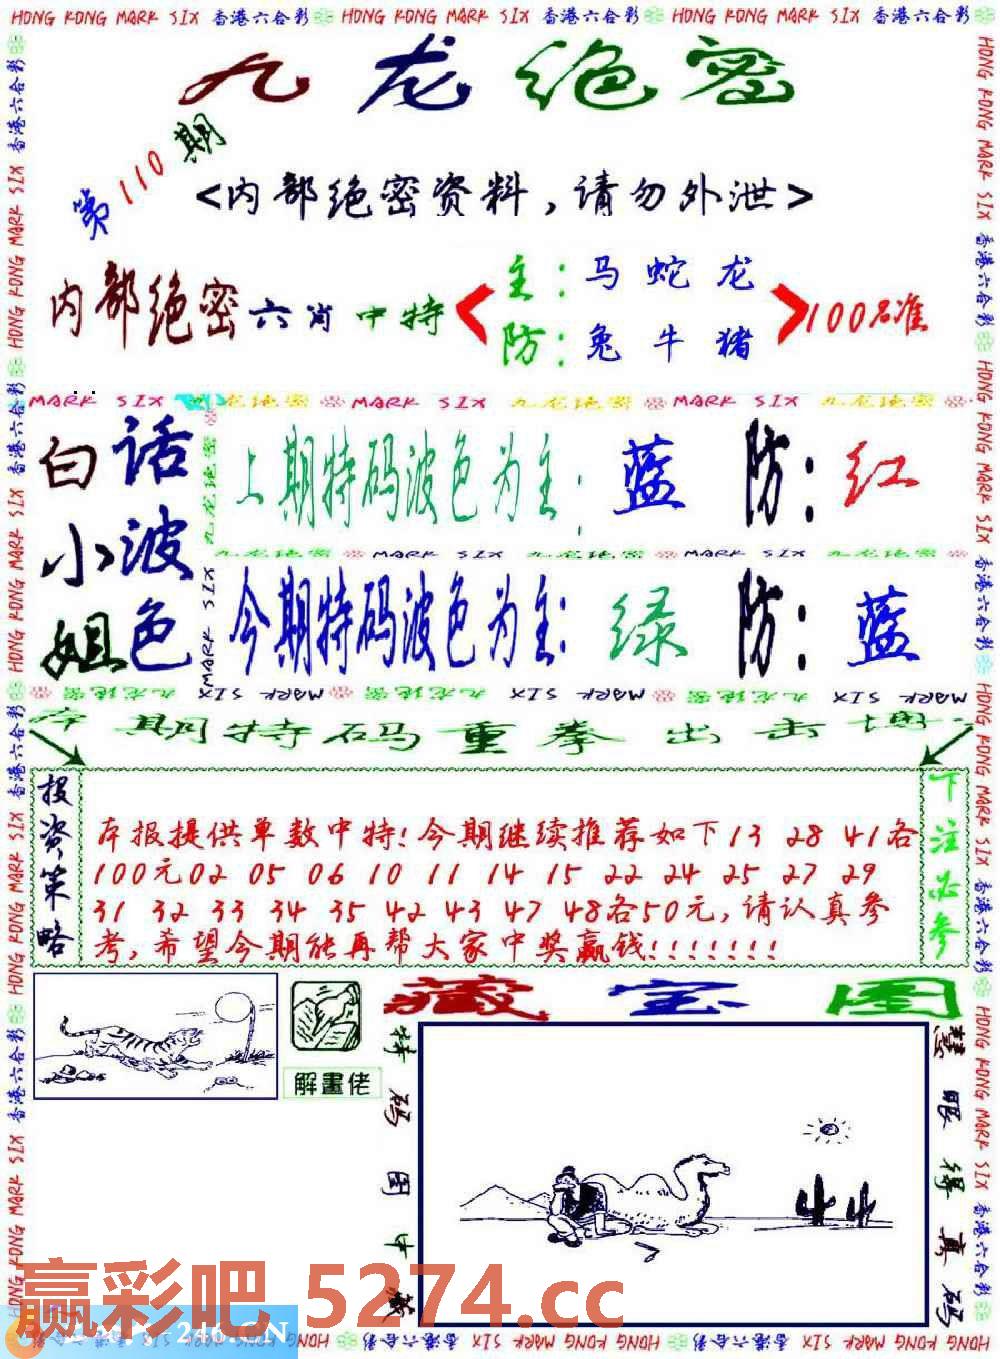 HONG KONG MARK SIX 香港六合彩 HONG KONG MARK SIX 香港六合彩 HONG KONG MARK SIX 香港六合彩
九龙绝密
第110期
<内部绝密资料,请勿外泄>
内部绝密六肖中特
主:马蛇龙
防:兔牛猪
100%准
MARK SIX 九龙绝密 MARK SIX 九龙绝密 MARK SIX 九龙绝密
白小姐
话波色
上期特码波色为主:蓝 防:红
九龙绝密 MARK SIX 九龙绝密 MARK SIX 九龙绝密
今期特码波色为主:绿 防:蓝
九龙绝密 MARK SIX 九龙绝密 MARK SIX 九龙绝密 MARK SIX
本期特码重拳出击
投资策略
本报提供单数中特!今期继续推荐如下13 28 41各
100元02 05 06 10 11 14 15 22 24 25 27 29
31 32 33 34 35 42 43 47 48各50元,请认真参
考,希望今期能再帮大家中奖赢钱!!!!!!!
下注必参
藏宝图
解畫佬
特码图中藏
慧眼得真码
赢彩吧 5274.cc
246T.CN
HONG KONG MARK SIX 香港六合彩 HONG KONG MARK SIX 香港六合彩